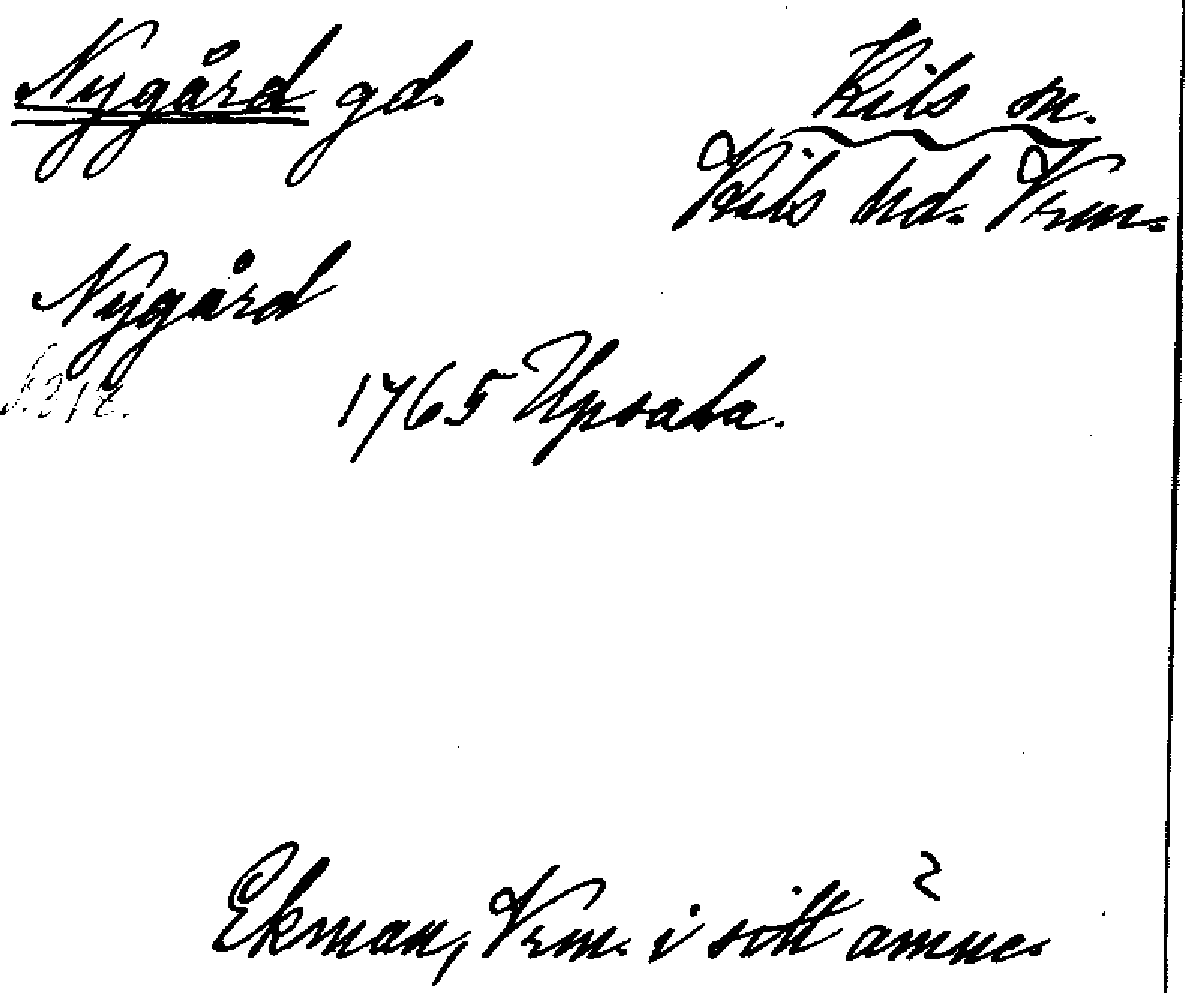 Nygård gd.
Kils sn.
Kils hd. Vrm.
Nygård
s. 217.
1765 Upsala.
Ekman, Vrm. i sitt ämne.